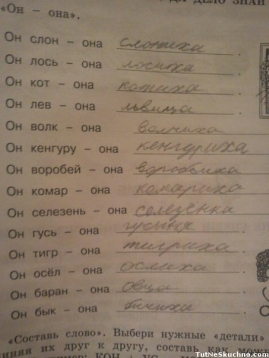 ДЕЛО ЗНАЙ
«Он – она».
Он слон – она слониха
Он лось – она лосиха
Он кот – она котиха
Он лев – она львица
Он волк – она волчиха
Он кенгуру – она кенгуриха
Он воробей – она воробьиха
Он комар – она комариха
Он селезень – она селезенка
Он гусь – она гусыня
Он тигр – она тигриха
Он осёл – она ослиха
Он баран – она овца
Он бык – она бычиха
"Составь слово". Выбери нужные «детали»
их друг к другу, составь как
TutNeSkuchno.com